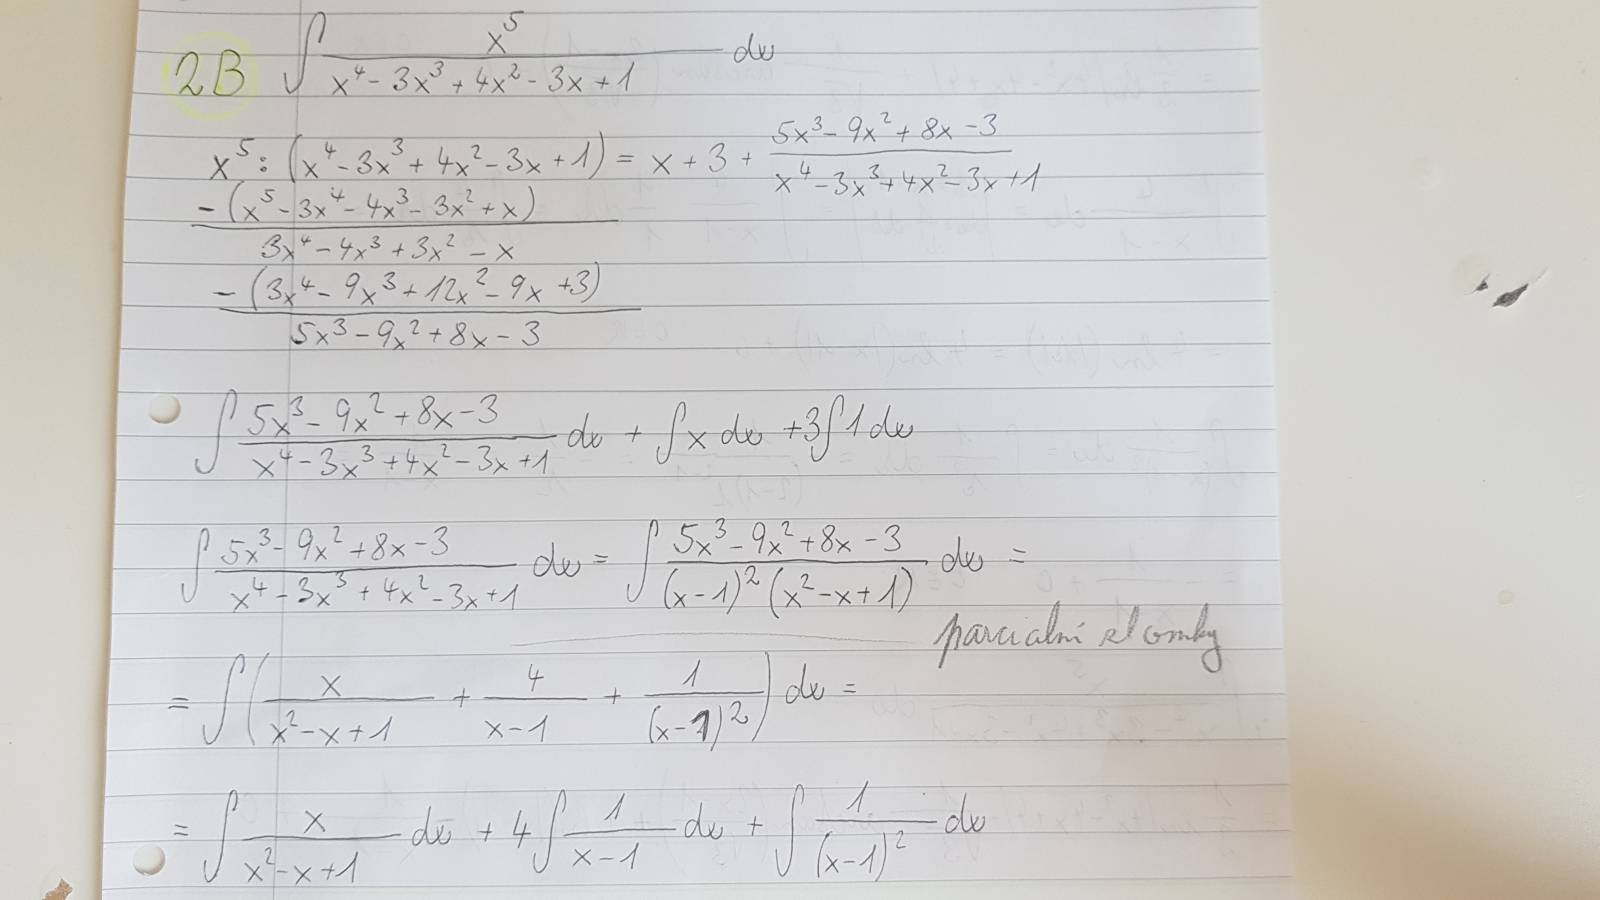 2B ∫ x⁵ / (x⁴ - 3x³ + 4x² - 3x + 1) dx
x⁵ : (x⁴ - 3x³ + 4x² - 3x + 1) = x + 3 + (5x³ - 9x² + 8x - 3) / (x⁴ - 3x³ + 4x² - 3x + 1)
- (x⁵ - 3x⁴ - 4x³ - 3x² + x)
3x⁴ - 4x³ + 3x² - x
- (3x⁴ - 9x³ + 12x² - 9x + 3)
5x³ - 9x² + 8x - 3
∫ (5x³ - 9x² + 8x - 3) / (x⁴ - 3x³ + 4x² - 3x + 1) dx + ∫ x dx + 3∫ 1 dx
∫ (5x³ - 9x² + 8x - 3) / (x⁴ - 3x³ + 4x² - 3x + 1) dx = ∫ (5x³ - 9x² + 8x - 3) / ((x - 1)² (x² - x + 1)) dx =
parcialní zlomky
= ∫ (x / (x² - x + 1) + 4 / (x - 1) + 1 / (x - 1)²) dx =
= ∫ x / (x² - x + 1) dx + 4 ∫ 1 / (x - 1) dx + ∫ 1 / (x - 1)² dx